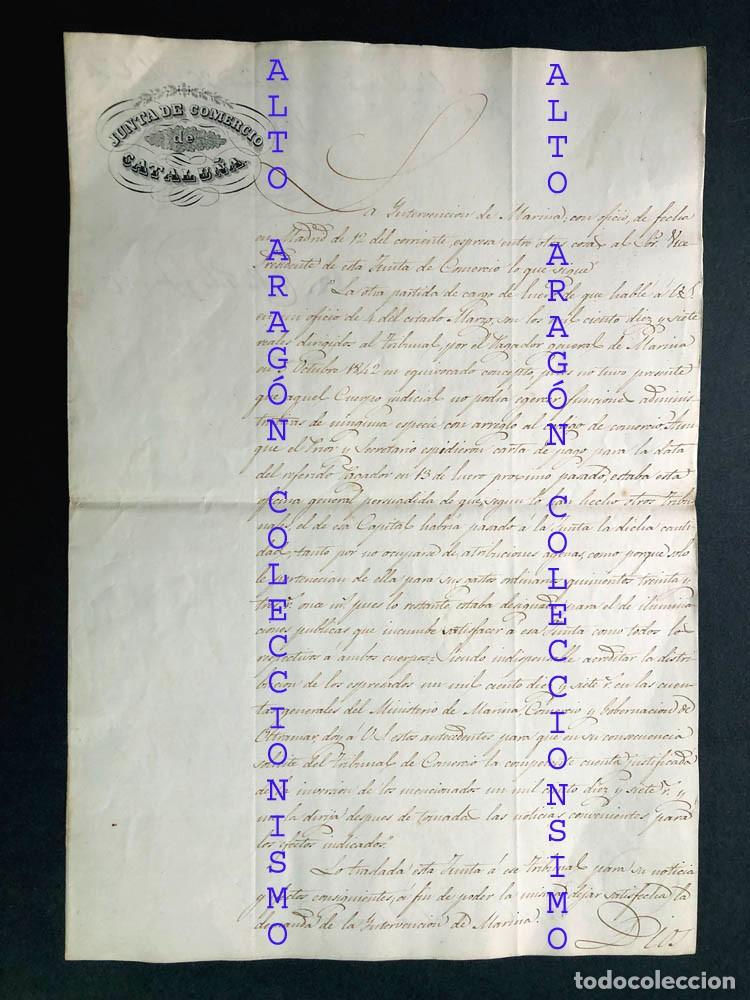 JUNTA DE COMERCIO
de
CATALUÑA
La Intervencion de Marina, con oficio, de fecha
en Madrid de 12 del corriente, espresa entre otras cosas al Sor. Vice
Presidente de esta Junta de Comercio lo que sigue
"La otra partida de cargo de que hable á V.S.
en mi oficio de 4 del citado Marzo, son los mil ciento diez y siete
reales dirigidos al Tribunal por el Pagador general de Marina
en Octubre 1842 en equivocado concepto, pues no tuvo presente
que aquel Cuerpo judicial no podia egercer funciones adminis
trativas de ninguna especie con arreglo al código de comercio. Aun
que el Prior y Secretario espidieron carta de pago para la data
del referido Pagador en 13 de Enero proximo pasado, estaba esta
oficina general persuadida de que, segun lo han hecho otros Tribu
nales, el de esa Capital habria pasado á la Junta la dicha canti
dad, tanto por no ocuparse de atribuciones agenas, como porque solo
le pertenecian de ella para sus gastos ordinarios quinientos treinta y
tres rs. once ms. pues lo restante estaba designado para el de ilumina
ciones publicas que incumbe satisfacer á esa Junta como todos los
respectivos a ambos cuerpos = Siendo indispensable acreditar la distri
bucion de los espresados un mil ciento diez y siete rs. en las cuen
tas generales del Ministerio de Marina, Comercio y Gobernacion de
Ultramar, doy a V.S. estos antecedentes para que en su consecuencia
solicite del Tribunal de Comercio la competente cuenta justificada
de la inversion de los mencionados un mil ciento diez y siete rs. y
me la dirija despues de tomadas las noticias convenientes para
los efectos indicados."
Lo traslada esta Junta á ese Tribunal para su noticia
y efectos consiguientes, á fin de poder la misma dejar satisfecha la
demanda de la Intervencion de Marina.
Dios
ALTO ARAGÓN COLECCIONISMO
ALTO ARAGÓN COLECCIONSIMO
todocoleccion